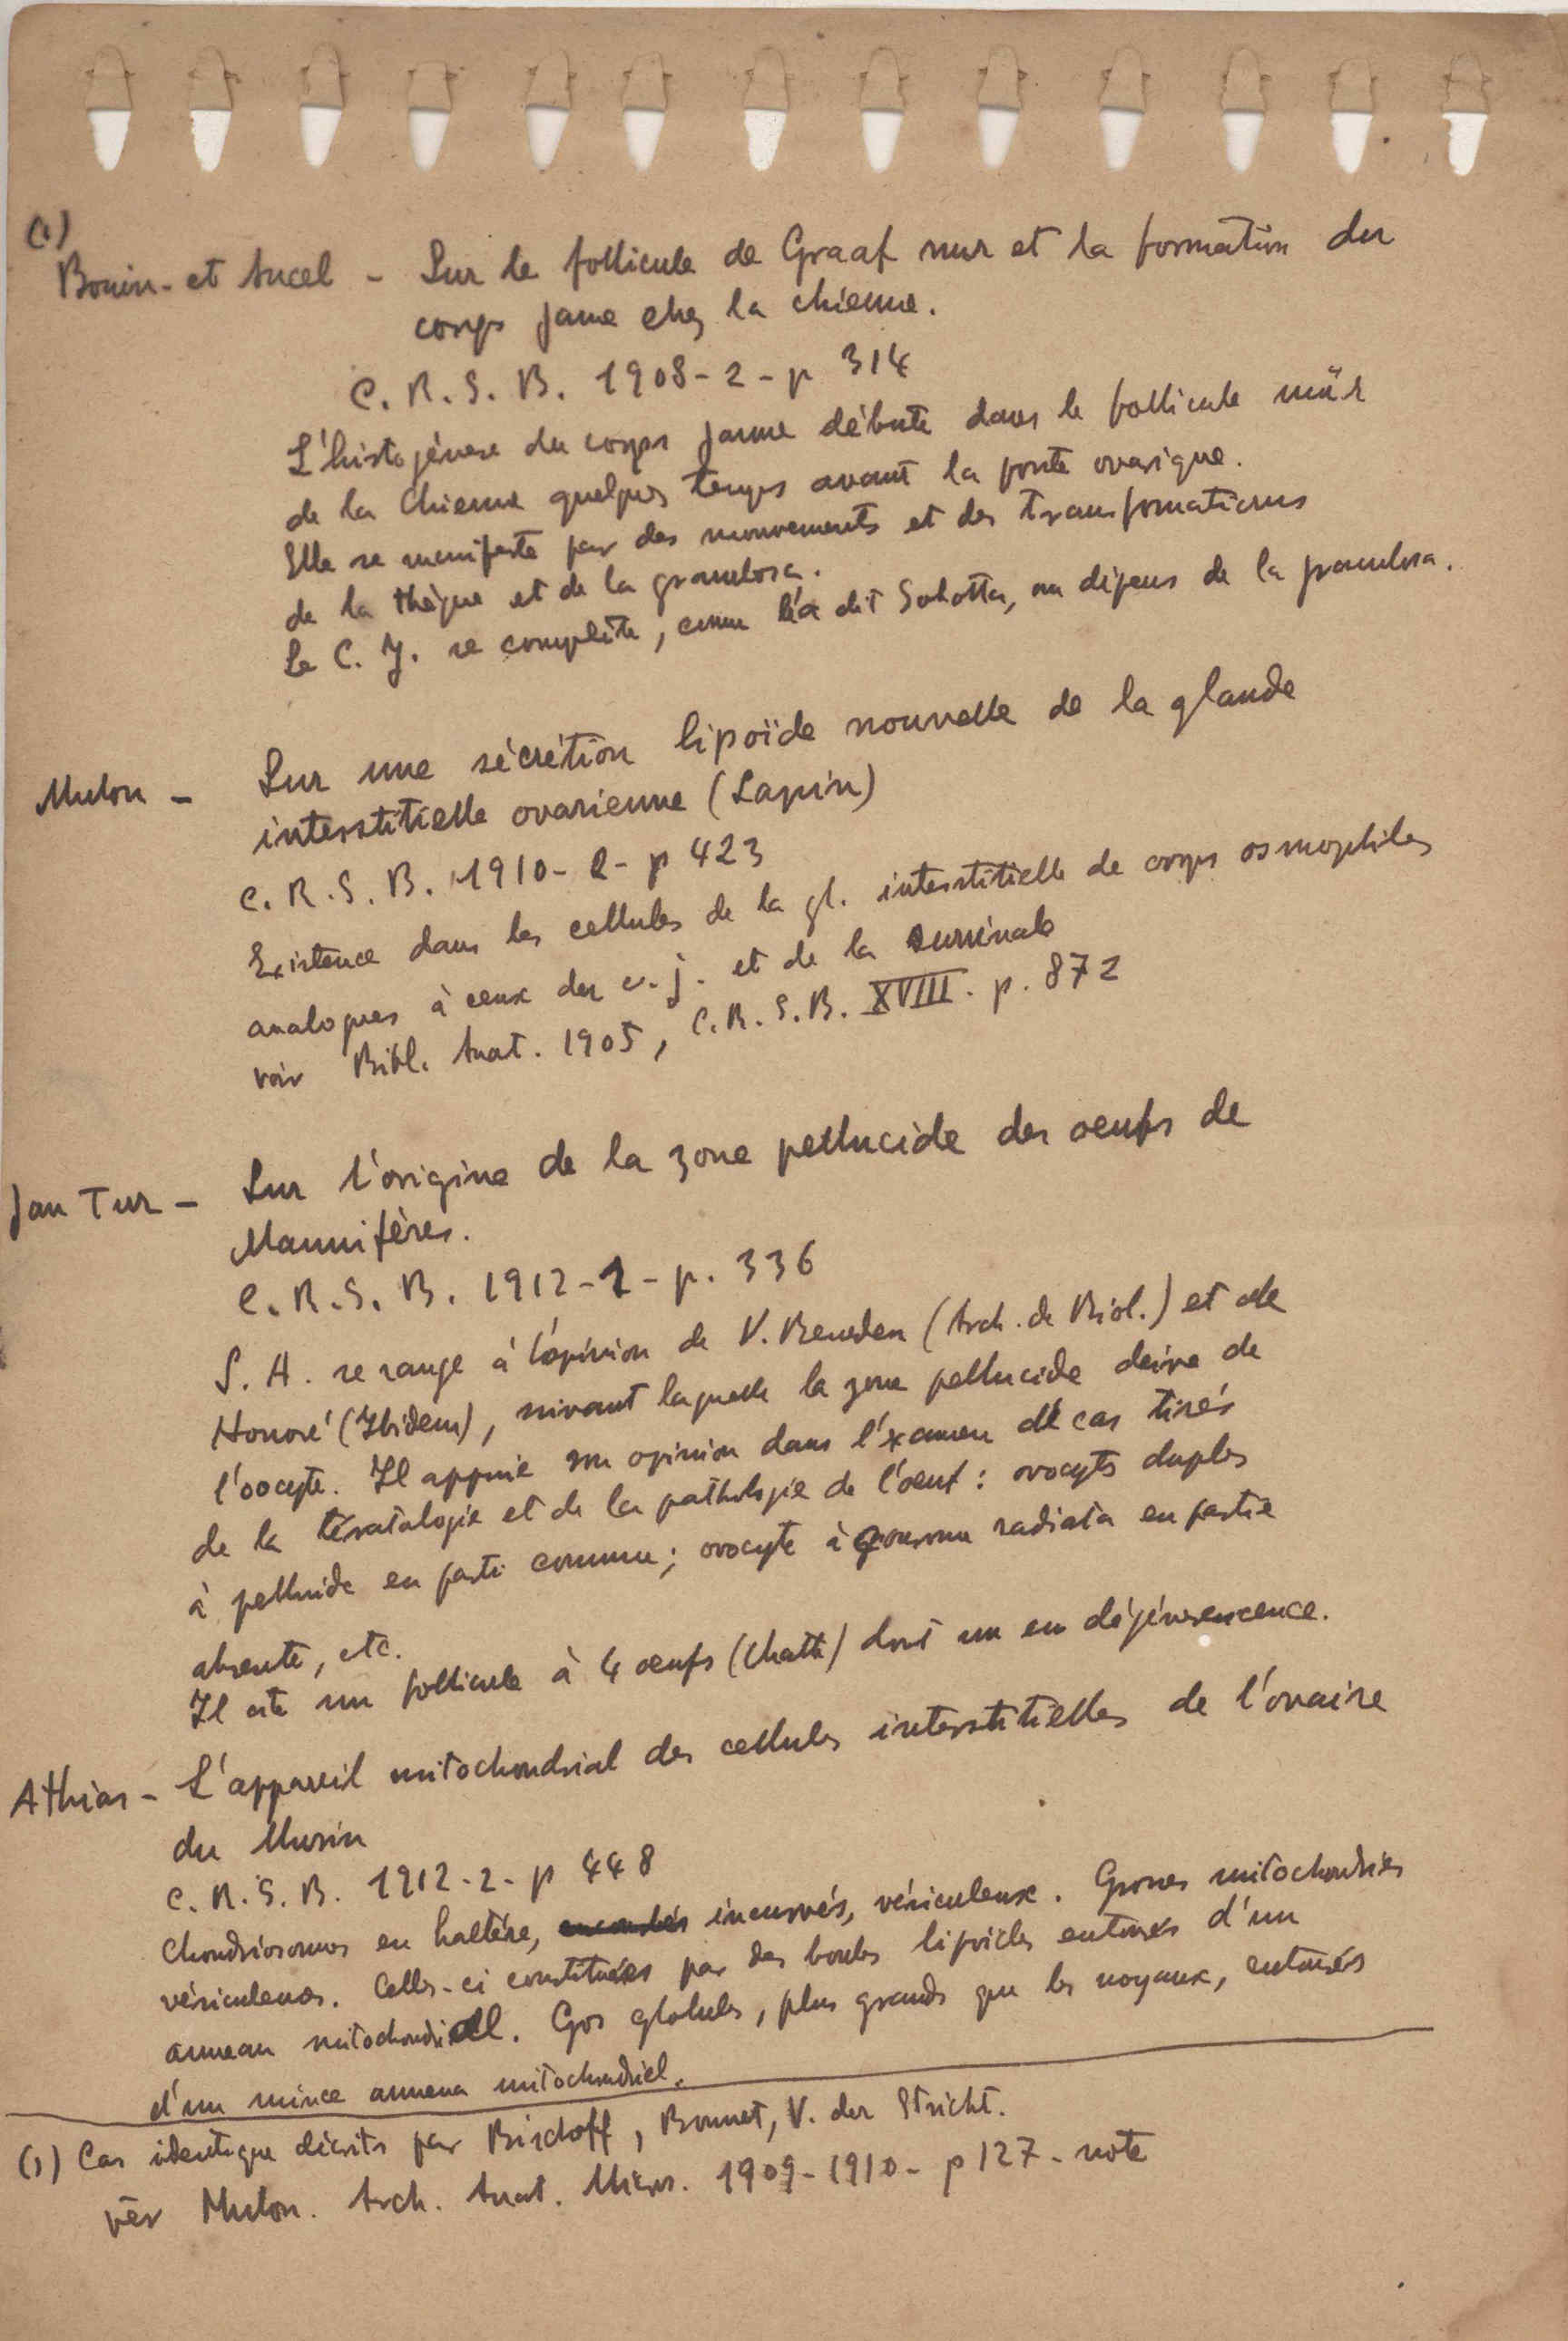 (1)
Bouin - et Ancel - Sur le follicule de Graaf mur et la formation du
corps jaune chez la chienne.
C. R. S. B. 1908 - 2 - p 314
L'histogénese du corps jaune débute dans le follicule mûr
de la chienne quelques temps avant la ponte ovarique.
Elle se manifeste par des mouvements et des transformations
de la thèque et de la granulosa.
Le C. J. se complète, comme l'a dit Sobotta, au dépens de la granulosa.
Mulon - Sur une sécrétion lipoïde nouvelle de la glande
interstitielle ovarienne (Lapin)
C. R. S. B. 1910 - 2 - p 423
Existence dans les cellules de la gl. interstitielle de corps osmophiles
analogues à ceux du c. j. et de la surrénale
voir Bibl. Anat. 1905, C. R. S. B. XVIII. p. 872
Jan Tur - Sur l'origine de la zone pellucide des oeufs de
Mammifères.
C. R. S. B. 1912 - 2 - p. 336
S. A. se range à l'opinion de V. Beneden (Arch. de Biol.) et de
Honoré (Ibidem), suivant laquelle la zone pellucide derive de
l'oocyte. Il appuie son opinion dans l'éxamen de cas tirés
de la tératologie et de la pathologie de l'oeuf : ovocyts duples
à pellucide en partie commun ; ovocyte à corona radiata en partie
absente, etc.
Il cite un follicule à 4 oeufs (Chatte) dont un en dégénerencence.
Athias - L'appareil mitochondrial des cellules interstitielles de l'ovaire
du Murin
C. R. S. B. 1912 - 2 - p 448
Chondriosomes en haltère, incurvés, vésiculeux. Grosses mitochondries
vésiculeuses. Celles-ci constituées par des boules lipoïdes entourés d'un
anneau mitochondriell. Gos globules, plus grands que les noyaux, entourés
d'un mince anneau mitochondriel.
(1) Cas identique décrits par Bischoff, Bonnet, V. der Stricht.
vêr Mulon. Arch. Anat. Micr. 1909 - 1910 - p 127 - note